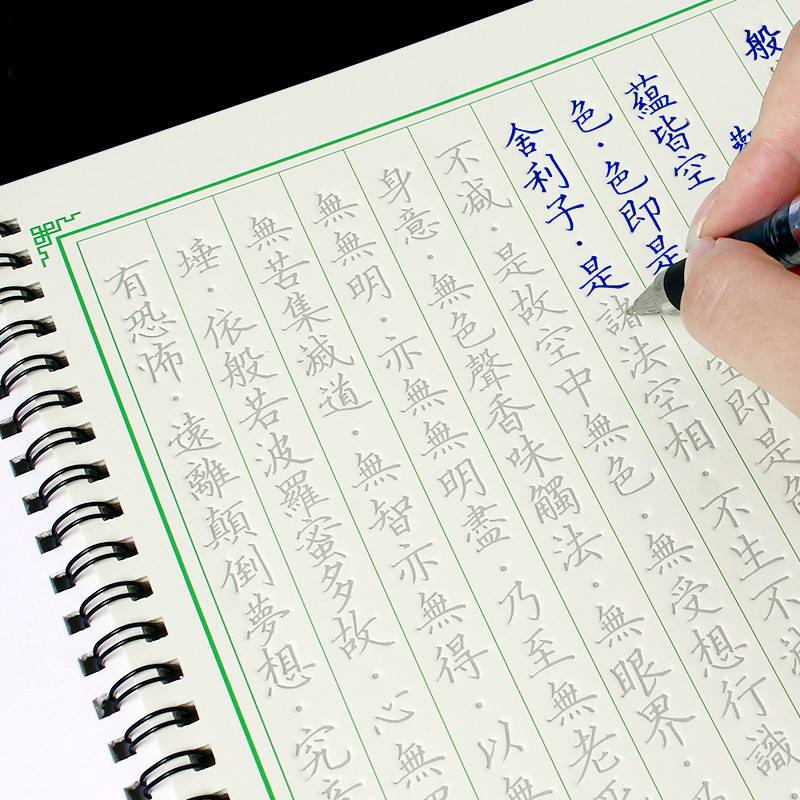 般
蘊皆空
色·色即是空即是色
舍利子·是諸法空相·不生不滅
不減·是故空中無色·無受想行識
身意·無色聲香味觸法·無眼界·乃
無無明·亦無無明盡·乃至無老死
無苦集滅道·無智亦無得·以無
埵·依般若波羅蜜多故·心無罣
有恐怖·遠離顛倒夢想·究竟